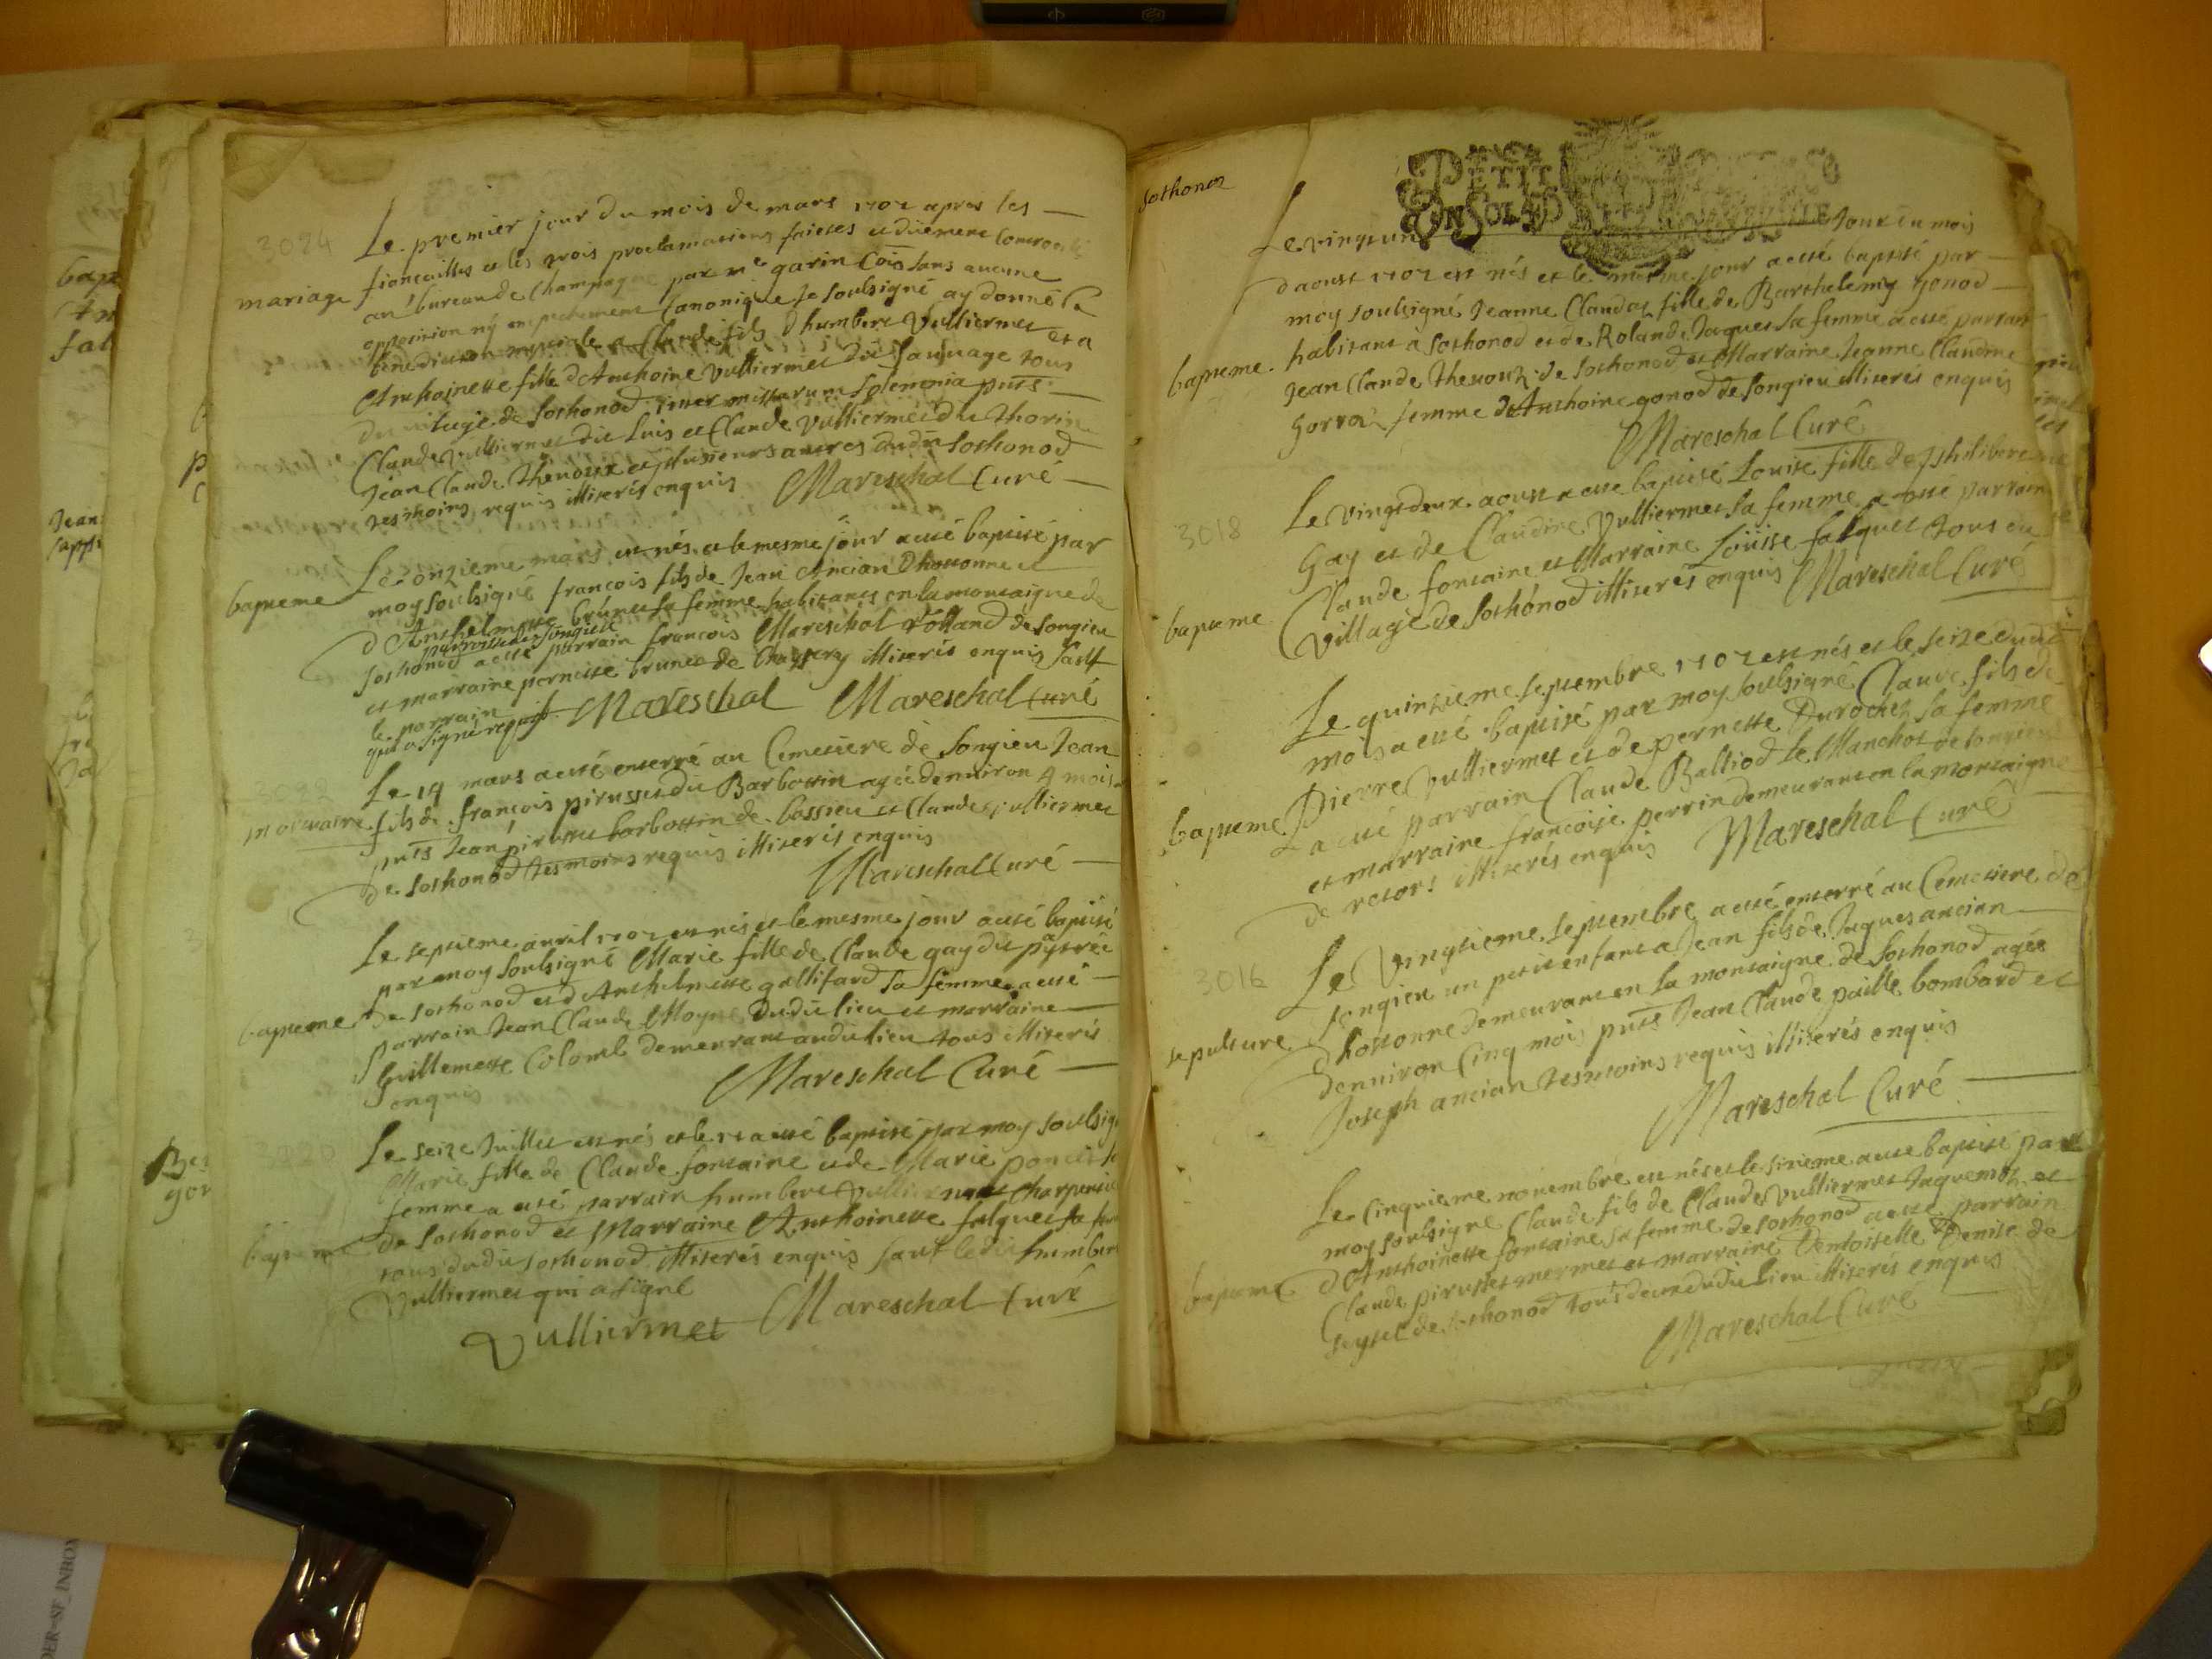 3024
Le premier jour du mois de mars 1702 apres les
fiancailles et les trois proclamations faictes et duement
mariage
au bureau de Champagne par me garin Cois sans aucune
opposition ny empechement Canonique Je soulsigné ay donné la
benediction nuptiale a Claude fils d humbert Vulliermet et a
Anthoinette fille d Anthoine Vulliermet dit Sauuage tous
du village de Sothonod inter missarum solemnia pnts
Claude Vulliermet dit Luis et Claude Vulliermet du
Jean Claude Theuoux et plusieurs autres dudit Sothonod
tesmoins requis illiterés enquis Mareschal Curé
Le onzieme mars est nés et le mesme jour a esté baptisé par
bapteme
moy soulsigné francois fils de Jean Ancian Dhotonne et
d Anthelmette brunet sa femme habitants en la montaigne de
parroisse de songieu
Sothonod a esté parrain francois Mareschal rolland de songieu
et marraine pernette brunet de illiterés enquis sauf
le parrain
qui a signé requis Mareschal Mareschal Curé
Le 14 mars a esté enterré au Cemetiere de songieu Jean
mortuaire
fils de francois pirusset du Barbottin agée denuiron 4 mois
pnts Jean pirusset barbottin de bassieu et Claude Vulliermet
de Sothonod tesmoins requis illiterés enquis
Mareschal Curé
Le septieme auril 1702 est nés et le mesme jour a esté baptisé
par moy soulsigné Marie fille de Claude gay du
bapteme
de sothonod et d Anthelmette gallifard sa femme a esté
parrain Jean Claude Moyne Dudit lieu et marraine
Guillemette Colomb demeurant audit lieu tous illiterés
enquis
Mareschal Curé
3020
Le seize Juillet est nés et le 17 a esté baptisé par moy soulsigné
Marie fille de Claude fontaine et de Marie poncet
femme a esté parrain humbert Vulliermet
bapteme
de Sothonod et Marraine Anthoinette falquet
tous dudit sothonod illiterés enquis sauf ledit humbert
Vulliermet qui a signé
Vulliermet Mareschal Curé
Sothonod
PETIT
Le vingt un Jour du mois
d aoust 1702 est nés et le mesme jour a esté baptisé par
moy soulsigné Jeanne Claudaz fille de Barthelemy gonod
habitant a Sothonod et de Rolande Jaquet sa femme a esté parrain
bapteme
Jean Claude Theuoux de Sothonod et Marraine Jeanne Claudine
gorraz femme d Anthoine gonod de Songieu illiterés enquis
Mareschal Curé
Le vingtdeux aoust a esté baptisé Louise fille de philibert
3018
gay et de Claudine Vulliermet sa femme a esté parrain
Claude fontaine et Marraine Loüise falquet tous du
bapteme
village de Sothonod illiterés enquis Mareschal Curé
Le quinzieme septembre 1702 est nés et le seize dudit
mois a esté baptisé par moy soulsigné Claude fils de
Pierre Vulliermet et de pernette Durochez sa femme
bapteme
a esté parrain Claude Balliod le Manchot de songieu
et marraine francoise perrin demeurant en la montaigne
de retort illiterés enquis Mareschal Curé
Le Vingtieme septembre a esté enterré au Cemetiere de
3016
songieu un petit enfant a Jean fils de Jaques ancian
sepulture
Dhotonne demeurant en la montaigne de Sothonod agée
denuiron Cinq mois pnts Jean Claude paille bombard et
Joseph ancian tesmoins requis illiterés enquis
Mareschal Curé
Le Cinquieme nouembre est nés et le sixieme a esté baptisé par
moy soulsigné Claude fils de Claude Vulliermet Jaquemoz et
d Anthoinette fontaine sa femme de Sothonod a esté parrain
bapteme
Claude pirusset mermet et marraine Demoiselle Denise de
seyssel de Sothonod tous deux dudit lieu illiterés enquis
Mareschal Curé